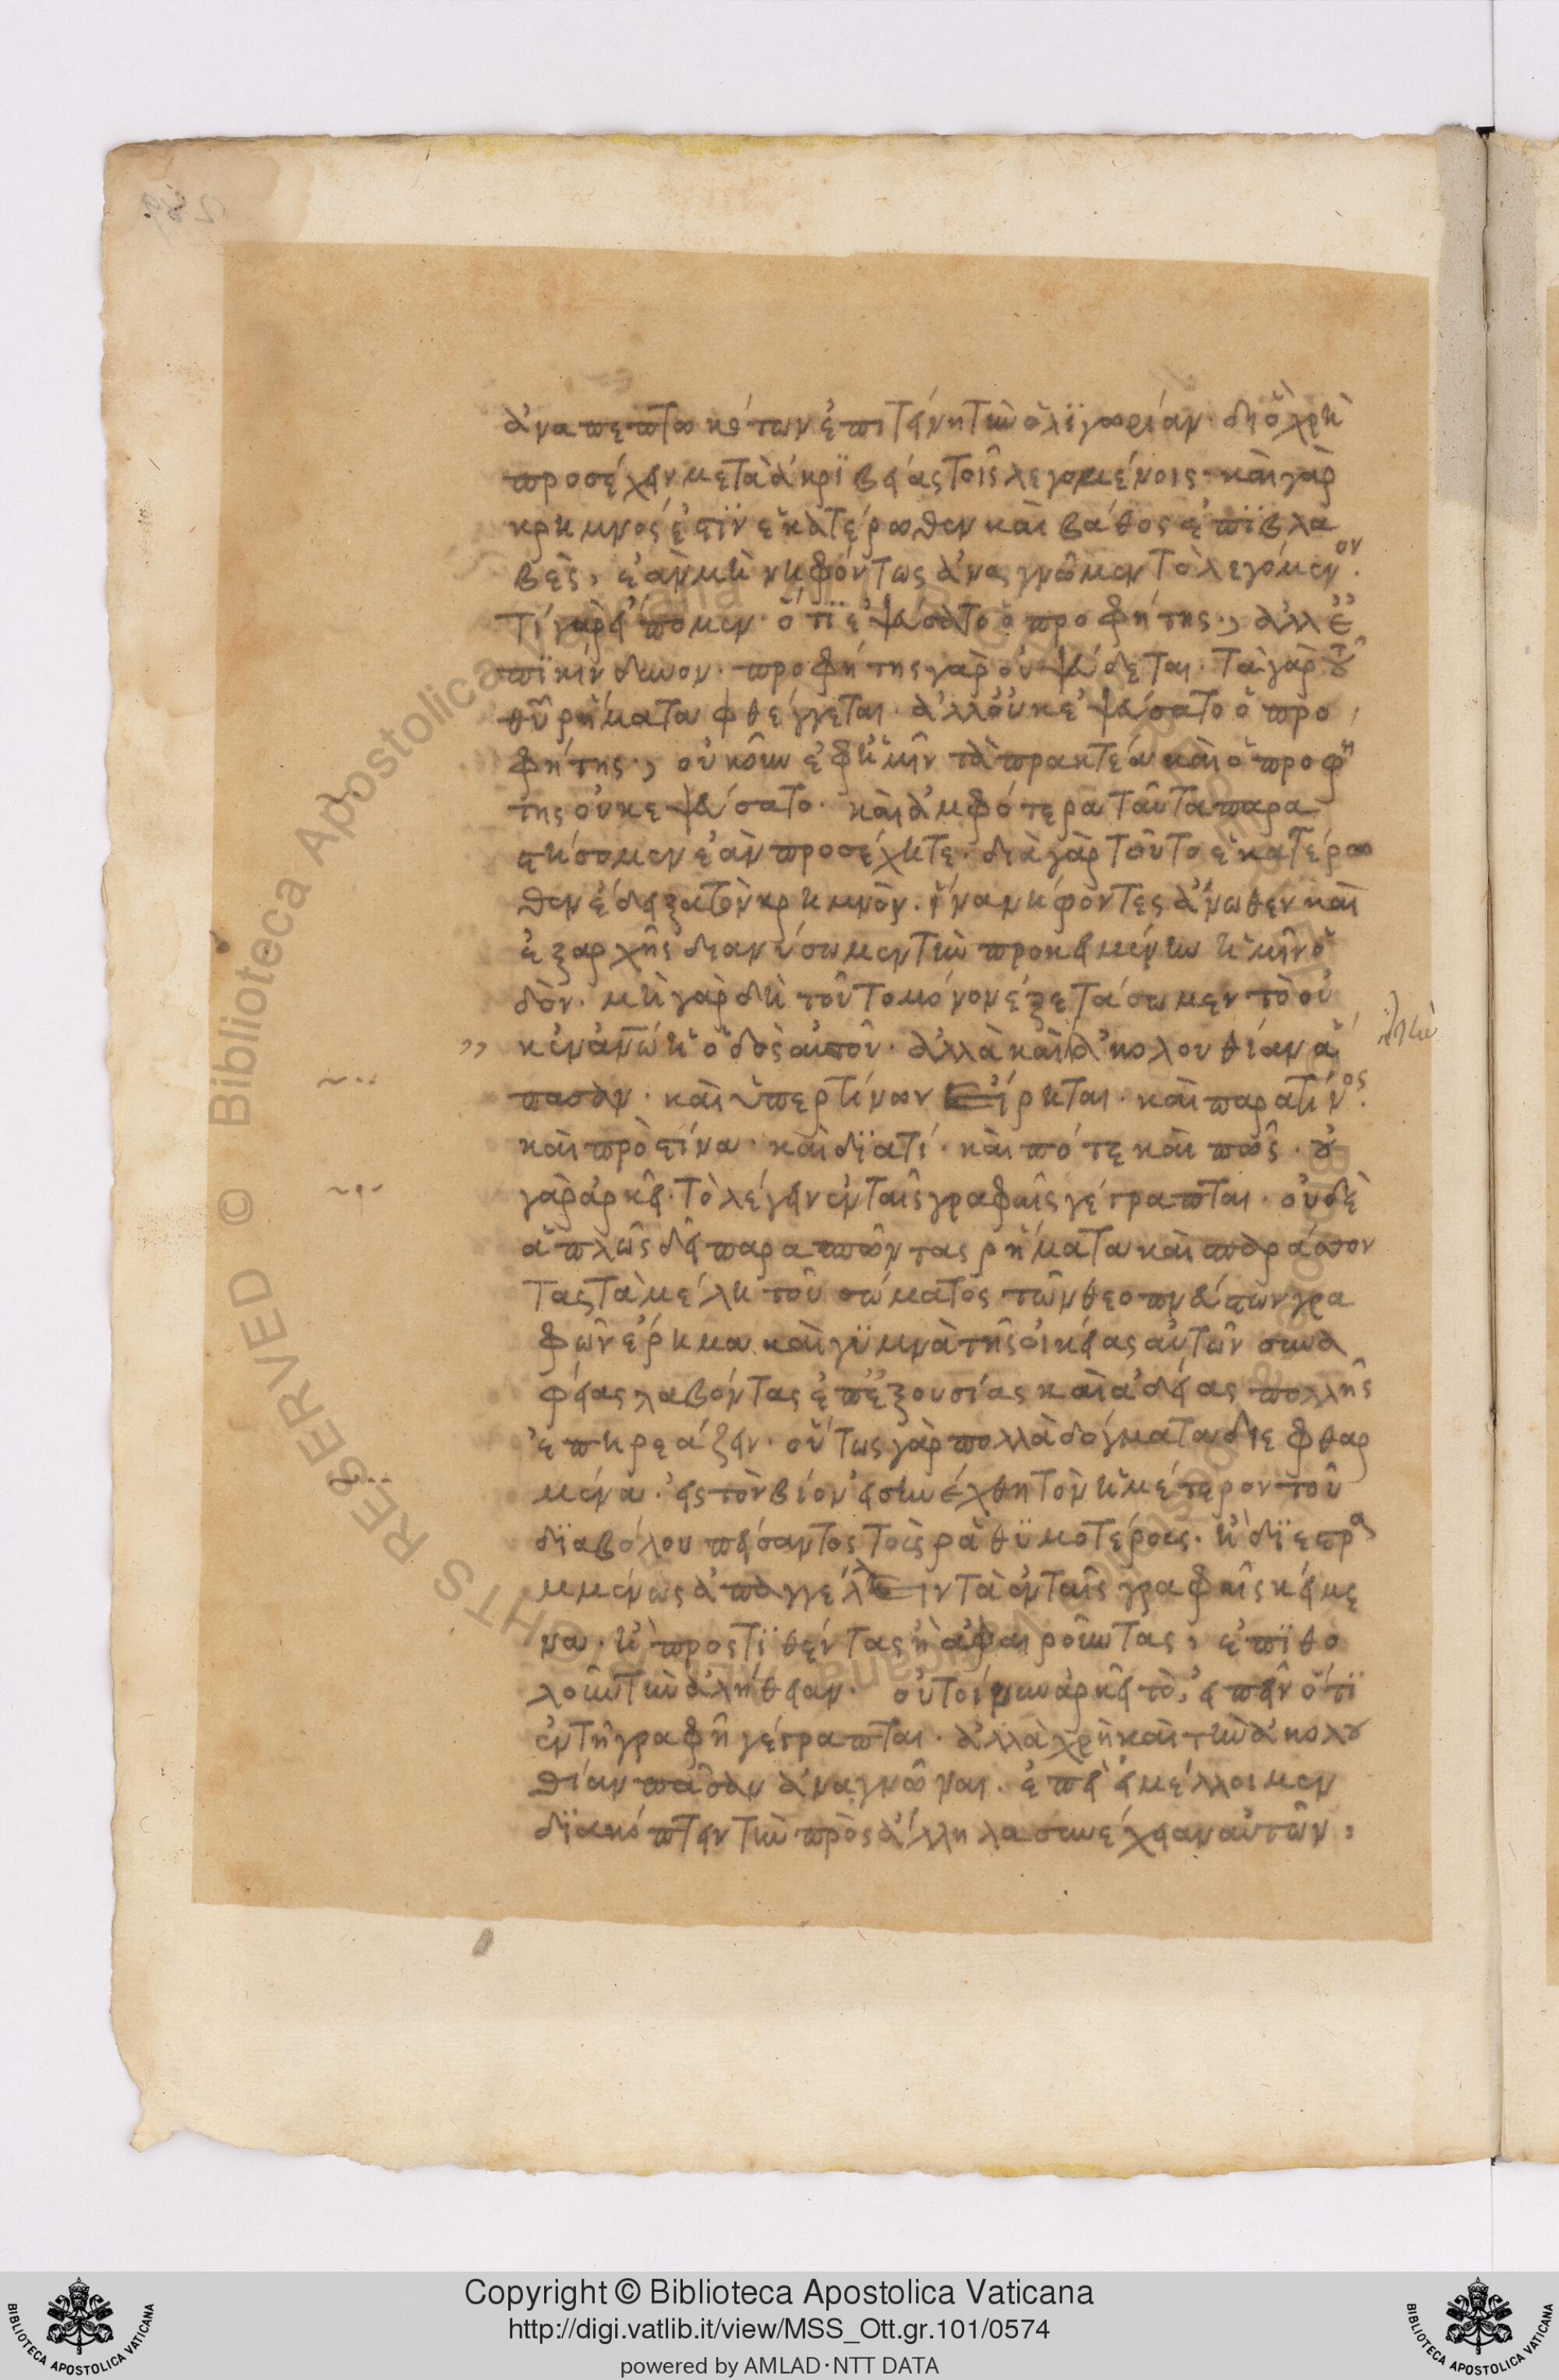 ἀναπεπτωκότων ἐπιτείνῃ τὴν ὀλιγωρίαν· διὸ χρὴ
προσέχειν μετὰ ἀκριβείας τοῖς λεγομένοις· καὶ γὰρ
κρημνός ἐστιν ἑκατέρωθεν καὶ βάθος ἐπϊβλα
βὲς, ἐὰν μὴ νηφόντως ἀναγνῶμεν τὸ λεγόμενον.
Τί γὰρ εἴπομεν· ὅτϊ ἐψεύσατο ὁ προφήτης, ἀλλ' ἐ
πϊκίνδυνον· προφήτης γὰρ οὐ ψεύδεται· τὰ γὰρ τοῦ
θῦ ῥήματα φθέγγεται· ἀλλ' οὐκ ἐψεύσατο ὁ προ
φήτης, οὐκοῦν ἐφ' ἡμῖν τὰ πρακτέα καὶ ὁ προφή
της οὐκ ἐψεύσατο· καὶ ἀμφότερα ταῦτα παρα
στήσομεν ἐὰν προσέχητε· διὰ γὰρ τοῦτο ἑκατέρω
θεν ἔδειξα τὸν κρημνὸν· ἵνα νήφοντες ἄνωθεν καὶ
ἐξαρχῆς διανύσωμεν τὴν προκειμένην ἡμῖν ὁ
δὸν· μὴ γὰρ δὴ τοῦτο μόνον ἐξετάσωμεν τὸ οὐ
κ ἐν ἀνῶ ἡ ὁδὸς αὐτοῦ· ἀλλὰ καὶ ἀκολουθίαν ἅ
πασαν· καὶ ὑπὲρ τίνων εἴρηται· καὶ παρὰ τίνος.
καὶ πρὸς τίνα· καὶ δϊατί· καὶ πότε καὶ πῶς· οὐ
γὰρ ἀρκεῖ· τὸ λέγειν ἐν ταῖς γραφαῖς γέγραπται· οὐδὲ
ἁπλῶς δεῖ παρασπῶντας ῥήματα καὶ σπαράσσον
τας τὰ μέλη τοῦ σώματος τῶν θεοπνεύστων γρα
φῶν ἔρημα καὶ γϋμνὰ τῆς οἰκείας αὐτῶν συνα
φείας λαβόντας ἐπ' ἐξουσίας καὶ ἀδείας πολλῆς
ἐπηρεάζειν· οὕτως γὰρ πολλὰ δόγματα διεφθαρ
μένα· εἰς τὸν βίον εἰσηνέχθη τὸν ἡμέτερον τοῦ
δϊαβόλου πείσαντος τοὺς ῥαθϋμοτέρους· ἢ δϊεστρα
μμένως ἀπαγγέλλειν τὰ ἐν ταῖς γραφαῖς κείμε
να· ἢ προστϊθέντας ἢ ἀφαιροῦντας, ἐπϊθο
λοῦν τὴν ἀλήθειαν· οὐ τοίνυν ἀρκεῖ τὸ, εἰπεῖν ὅτϊ
ἐν τῇ γραφῇ γέγραπται· ἀλλὰ χρὴ καὶ τὴν ἀκολου
θίαν πᾶσαν ἀναγνῶναι· ἐπεὶ εἰ μέλλοιμεν
δϊακόπτειν τὴν πρὸς ἄλληλα συνέχειαν αὐτῶν,